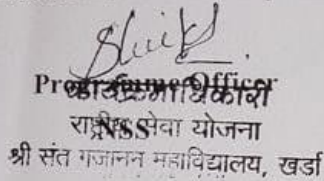 Programme Officer
कार्यक्रमाधिकारी
NSS
राष्ट्रीय सेवा योजना
श्री संत गजानन महाविद्यालय, खर्डा